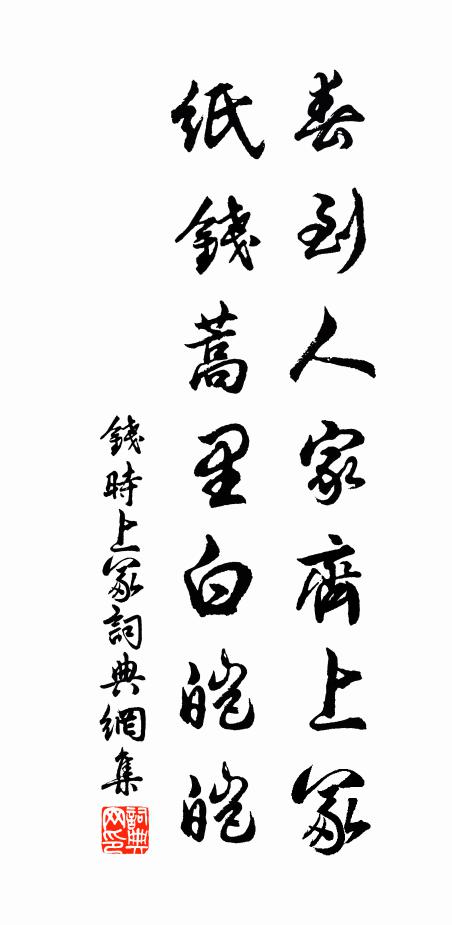 春到人家齊上冢
紙錢蒿里白皚皚
錢時上冢詞典網集
詞典网印